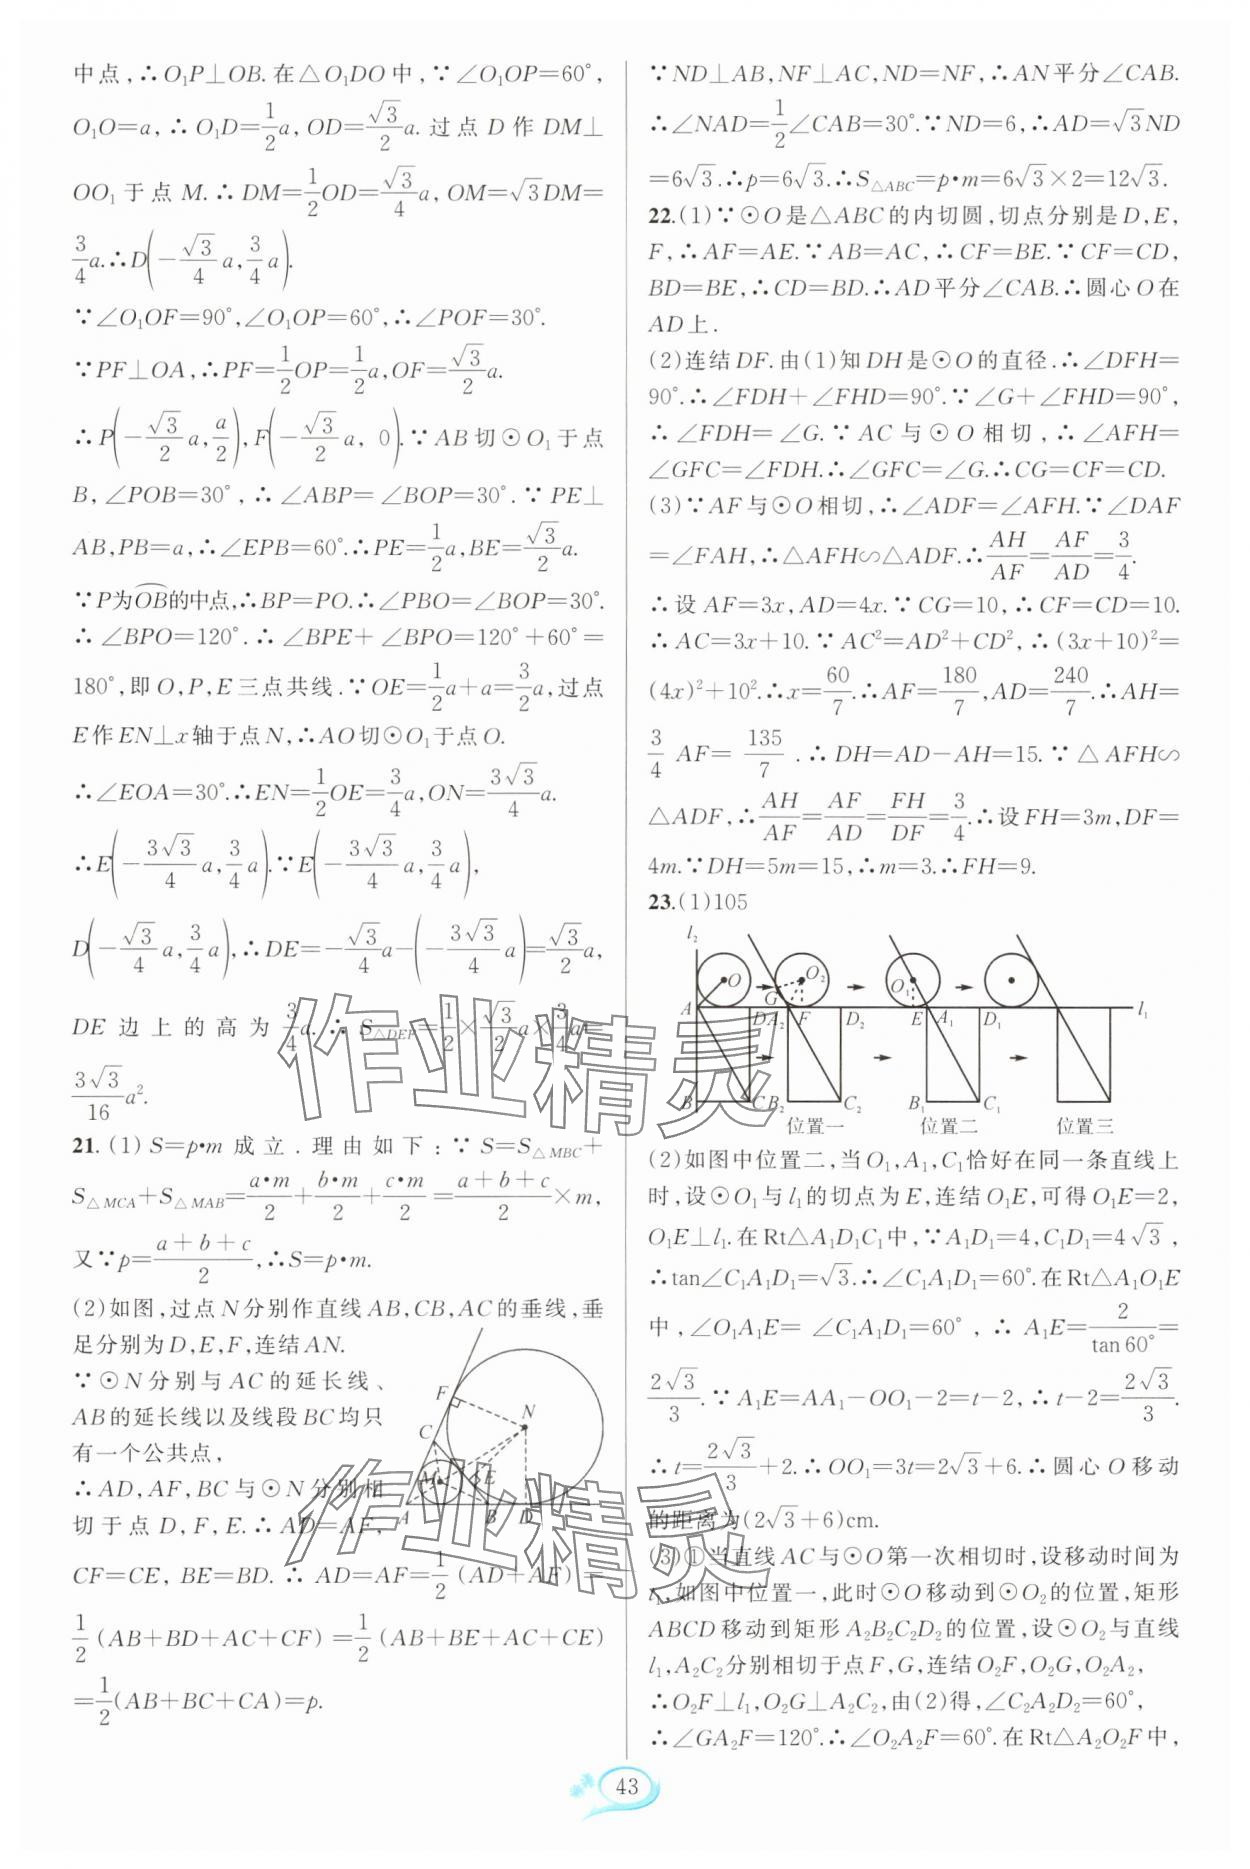 中点,∴O₁P⊥OB.在△O₁DO中,∵∠O₁OP=60°,
O₁O=a,∴O₁D=1/2a,OD=√3/2a.过点D作DM⊥
OO₁于点M.∴DM=1/2OD=√3/4a,OM=√3DM=
3/4a.∴D(-√3/4a,3/4a).
∵∠O₁OF=90°,∠O₁OP=60°,∴∠POF=30°.
∵PF⊥OA,∴PF=1/2OP=1/2a,OF=√3/2a.
∴P(-√3/2a,a/2),F(-√3/2a,0).∵AB切⊙O₁于点
B,∠POB=30°,∴∠ABP=∠BOP=30°.∵PE⊥
AB,PB=a,∴∠EPB=60°.∴PE=1/2a,BE=√3/2a.
∵P为OB⌒的中点,∴BP=PO.∴∠PBO=∠BOP=30°.
∴∠BPO=120°.∴∠BPE+∠BPO=120°+60°=
180°,即O,P,E三点共线.∵OE=1/2a+a=3/2a,过点
E作EN⊥x轴于点N,∴AO切⊙O₁于点O.
∴∠EOA=30°.∴EN=1/2OE=3/4a,ON=3√3/4a.
∴E(-3√3/4a,3/4a).∵E(-3√3/4a,3/4a),
D(-√3/4a,3/4a),∴DE=-√3/4a-(-3√3/4a)=√3/2a,
DE边上的高为3/4a.∴S△DEF=1/2×√3/2a×3/4a=
3√3/16a².
21.(1)S=p•m成立.理由如下:∵S=S△MBC+
S△MCA+S△MAB=a•m/2+b•m/2+c•m/2=(a+b+c)/2×m,
又∵p=(a+b+c)/2,∴S=p•m.
(2)如图,过点N分别作直线AB,CB,AC的垂线,垂
足分别为D,E,F,连结AN.
∵⊙N分别与AC的延长线、
AB的延长线以及线段BC均只
有一个公共点,
∴AD,AF,BC与⊙N分别相
切于点D,F,E.∴AD=AF,
F
N
C
M
E
A
B
D
CF=CE,BE=BD.∴AD=AF=1/2(AD+AF)=
1/2(AB+BD+AC+CF)=1/2(AB+BE+AC+CE)
=1/2(AB+BC+CA)=p.
∵ND⊥AB,NF⊥AC,ND=NF,∴AN平分∠CAB.
∴∠NAD=1/2∠CAB=30°.∵ND=6,∴AD=√3ND
=6√3.∴p=6√3.∴S△ABC=p•m=6√3×2=12√3.
22.(1)∵⊙O是△ABC的内切圆,切点分别是D,E,
F,∴AF=AE.∵AB=AC,∴CF=BE.∵CF=CD,
BD=BE,∴CD=BD.∴AD平分∠CAB.∴圆心O在
AD上.
(2)连结DF.由(1)知DH是⊙O的直径.∴∠DFH=
90°.∴∠FDH+∠FHD=90°.∵∠G+∠FHD=90°,
∴∠FDH=∠G.∵AC与⊙O相切,∴∠AFH=
∠GFC=∠FDH.∴∠GFC=∠G.∴CG=CF=CD.
(3)∵AF与⊙O相切,∴∠ADF=∠AFH.∵∠DAF
=∠FAH,∴△AFH∽△ADF.∴AH/AF=AF/AD=3/4.
∴设AF=3x,AD=4x.∵CG=10,∴CF=CD=10.
∴AC=3x+10.∵AC²=AD²+CD²,∴(3x+10)²=
(4x)²+10².∴x=60/7.∴AF=180/7,AD=240/7.∴AH=
3/4AF=135/7.∴DH=AD-AH=15.∵△AFH∽
△ADF,∴AH/AF=AF/AD=FH/DF=3/4.∴设FH=3m,DF=
4m.∵DH=5m=15,∴m=3.∴FH=9.
23.(1)105
l₂
O G O₂ O₁
A DA₂ F D₂ E A₁ D₁ l₁
B CB₂ C₂ B₁ C₁
位置一 位置二 位置三
(2)如图中位置二,当O₁,A₁,C₁恰好在同一条直线上
时,设⊙O₁与l₁的切点为E,连结O₁E,可得O₁E=2,
O₁E⊥l₁.在Rt△A₁D₁C₁中,∵A₁D₁=4,C₁D₁=4√3,
∴tan∠C₁A₁D₁=√3.∴∠C₁A₁D₁=60°.在Rt△A₁O₁E
中,∠O₁A₁E=∠C₁A₁D₁=60°,∴A₁E=2/tan60°=
2√3/3.∵A₁E=AA₁-OO₁-2=t-2,∴t-2=2√3/3.
∴t=2√3/3+2.∴OO₁=3t=2√3+6.∴圆心O移动
的距离为(2√3+6)cm.
(3)①当直线AC与⊙O第一次相切时,设移动时间为
t₁,如图中位置一,此时⊙O移动到⊙O₂的位置,矩形
ABCD移动到矩形A₂B₂C₂D₂的位置,设⊙O₂与直线
l₁,A₂C₂分别相切于点F,G,连结O₂F,O₂G,O₂A₂,
∴O₂F⊥l₁,O₂G⊥A₂C₂,由(2)得,∠C₂A₂D₂=60°,
∴∠GA₂F=120°.∴∠O₂A₂F=60°.在Rt△A₂O₂F中,
作业精灵
作业精灵
43